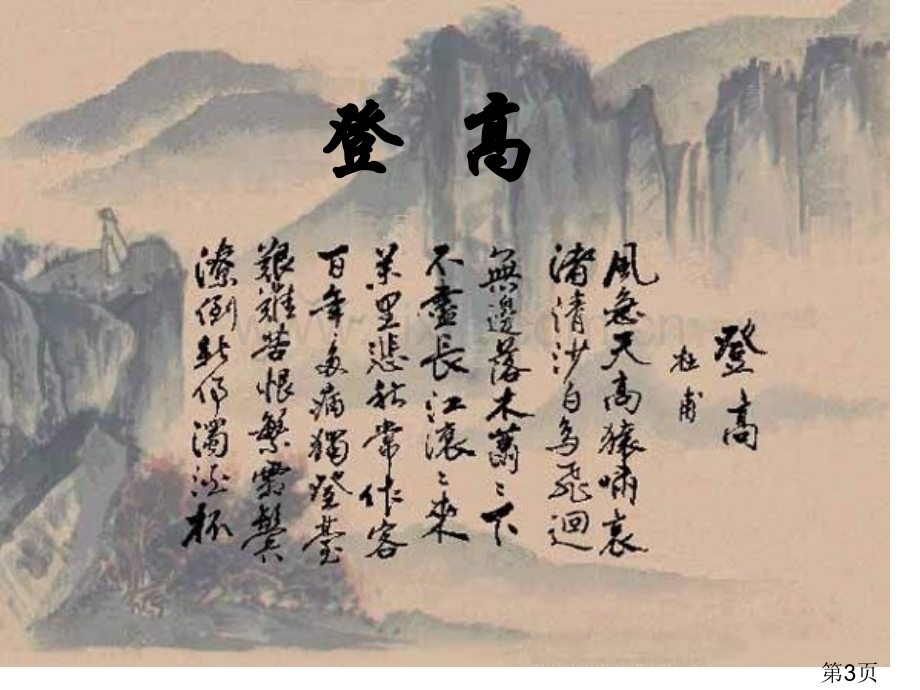 登 高
登高
杜甫
風急天高猿嘯哀
渚清沙白鳥飛迴
無邊落木蕭〻下
不盡長江滾〻來
萬里悲秋常作客
百年多病獨登臺
艱難苦恨繁霜鬢
潦倒新停濁酒杯
第3页